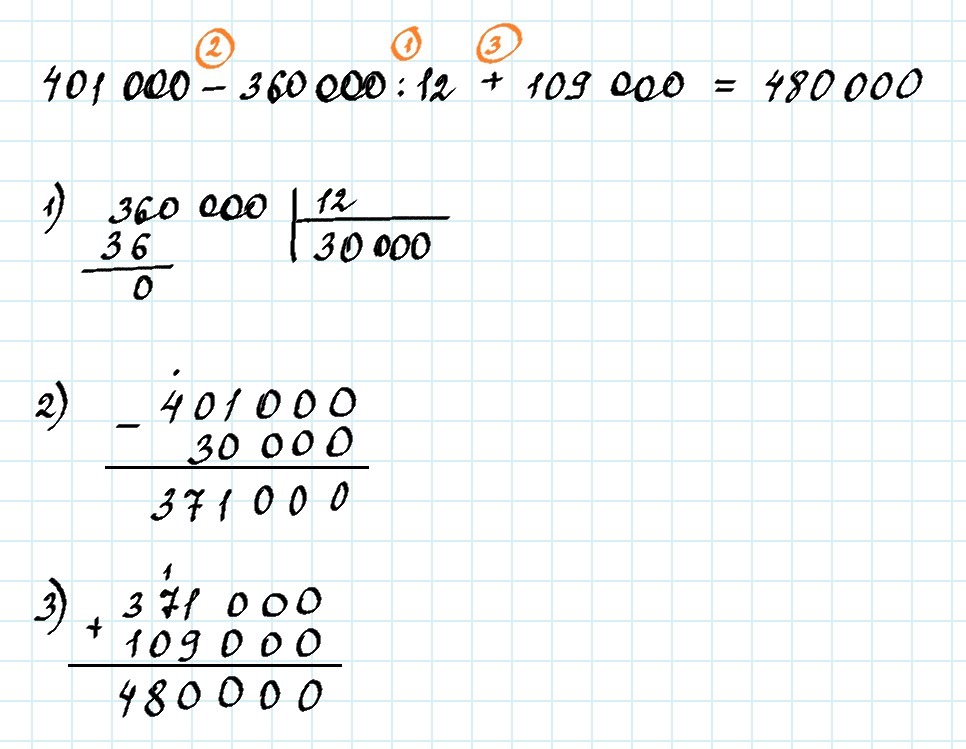 2 1 3
401 000 – 360 000 : 12 + 109 000 = 480 000
1) 360 000 | 12
36 30 000
0
2) – 401 000
30 000
371 000
1
3) + 371 000
109 000
480 000